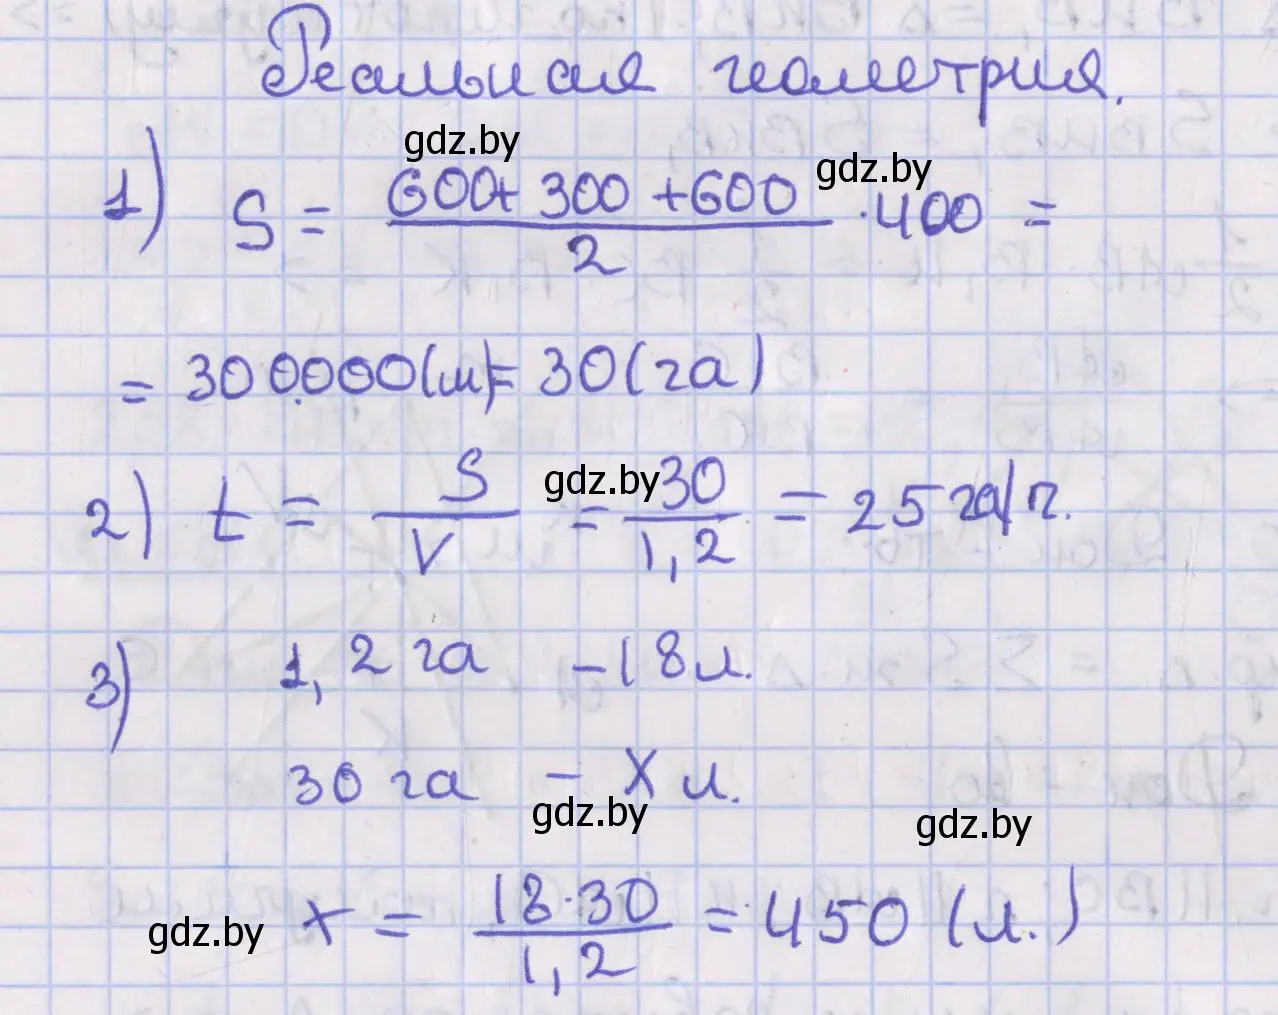 Реальная геометрия.
gdz.by
gdz.by
1) S = (600+ 300 +600)/2 · 400 =
= 300000(м)= 30(га)
2) t = S/V = 30/1,2 = 25 га/г.
gdz.by
3) 1,2 га – 18 л.
30 га – X л.
gdz.by
gdz.by
x = (18·30)/1,2 = 450 (л.)
gdz.by